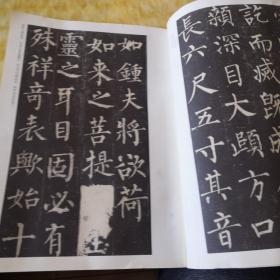 訖而滅既
顙深目大頤方口
長六尺五寸其音
如鍾夫將欲荷
如來之菩提
靈之耳目固必有
殊祥奇表歟始十